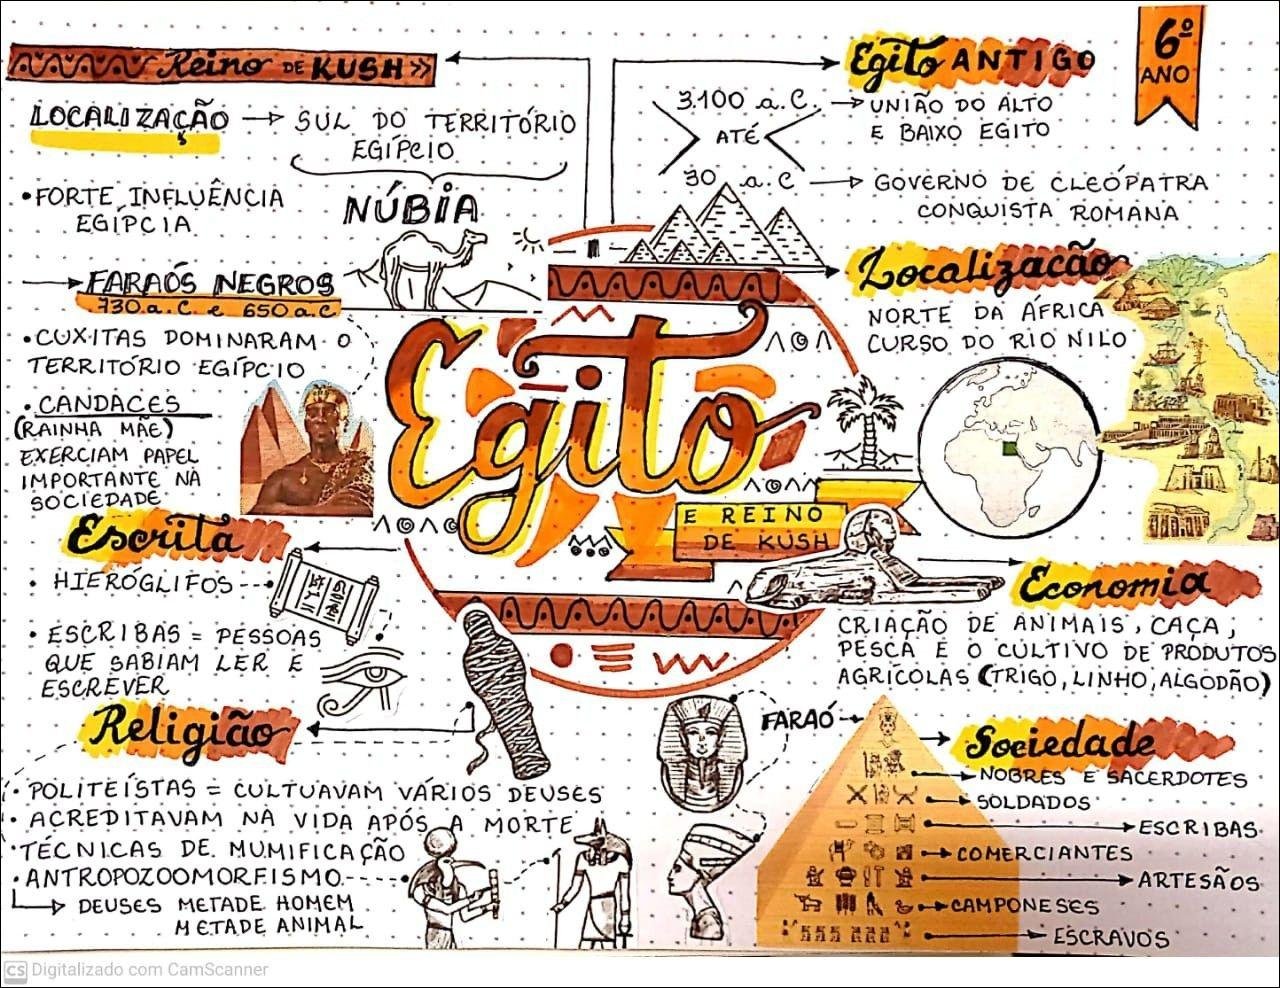 Reino DE KUSH >>
LOCALIZAÇÃO → SUL DO TERRITÓRIO
EGÍPCIO
NÚBIA
• FORTE INFLUÊNCIA
EGÍPCIA
→ FARAÓS NEGROS
730 a.C e 650 a.C
• CUXITAS DOMINARAM O
TERRITÓRIO EGÍPCIO
• CANDACES
(RAINHA MÃE)
EXERCIAM PAPEL
IMPORTANTE NA
SOCIEDADE
Escrita
• HIERÓGLIFOS
• ESCRIBAS = PESSOAS
QUE SABIAM LER E
ESCREVER
Religião
• POLITEÍSTAS = CULTUAVAM VÁRIOS DEUSES
• ACREDITAVAM NA VIDA APÓS A MORTE
• TÉCNICAS DE MUMIFICAÇÃO
• ANTROPOZOOMORFISMO
→ DEUSES METADE HOMEM
METADE ANIMAL
Egito
E REINO
DE KUSH
6º
ANO
Egito ANTIGO
3.100 a.C. → UNIÃO DO ALTO
E BAIXO EGITO
ATÉ
30 a.C → GOVERNO DE CLEÓPATRA
CONQUISTA ROMANA
Localização
NORTE DA ÁFRICA
CURSO DO RIO NILO
Economia
CRIAÇÃO DE ANIMAIS, CAÇA,
PESCA E O CULTIVO DE PRODUTOS
AGRÍCOLAS (TRIGO, LINHO, ALGODÃO)
Sociedade
FARAÓ
NOBRES E SACERDOTES
SOLDADOS
ESCRIBAS
COMERCIANTES
ARTESÃOS
CAMPONESES
ESCRAVOS
CS Digitalizado com CamScanner